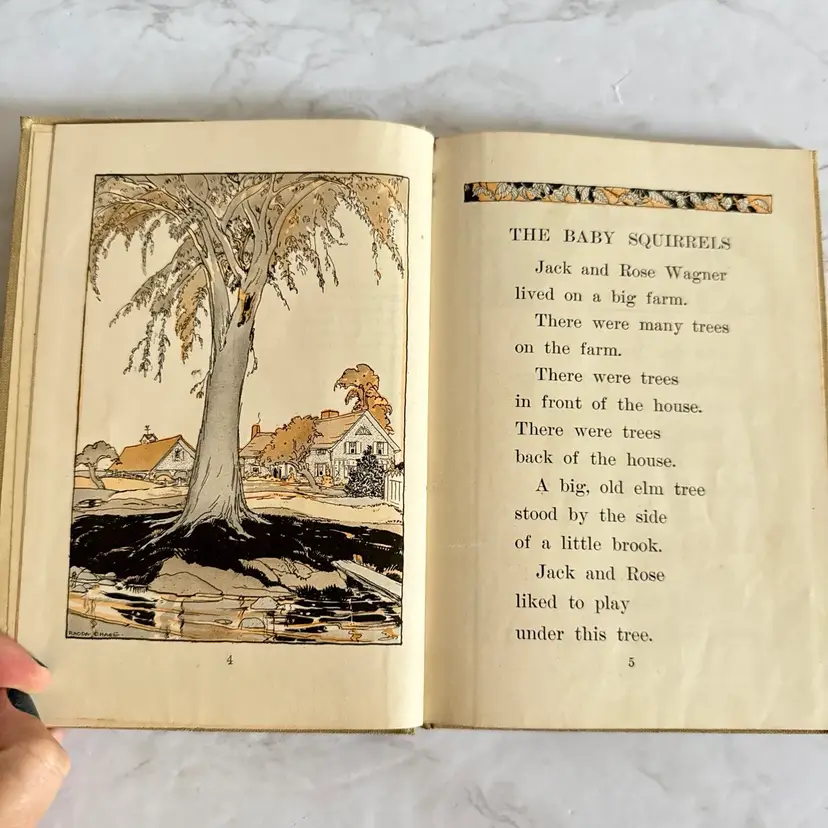 4
THE BABY SQUIRRELS
Jack and Rose Wagner
lived on a big farm.
There were many trees
on the farm.
There were trees
in front of the house.
There were trees
back of the house.
A big, old elm tree
stood by the side
of a little brook.
Jack and Rose
liked to play
under this tree.
5